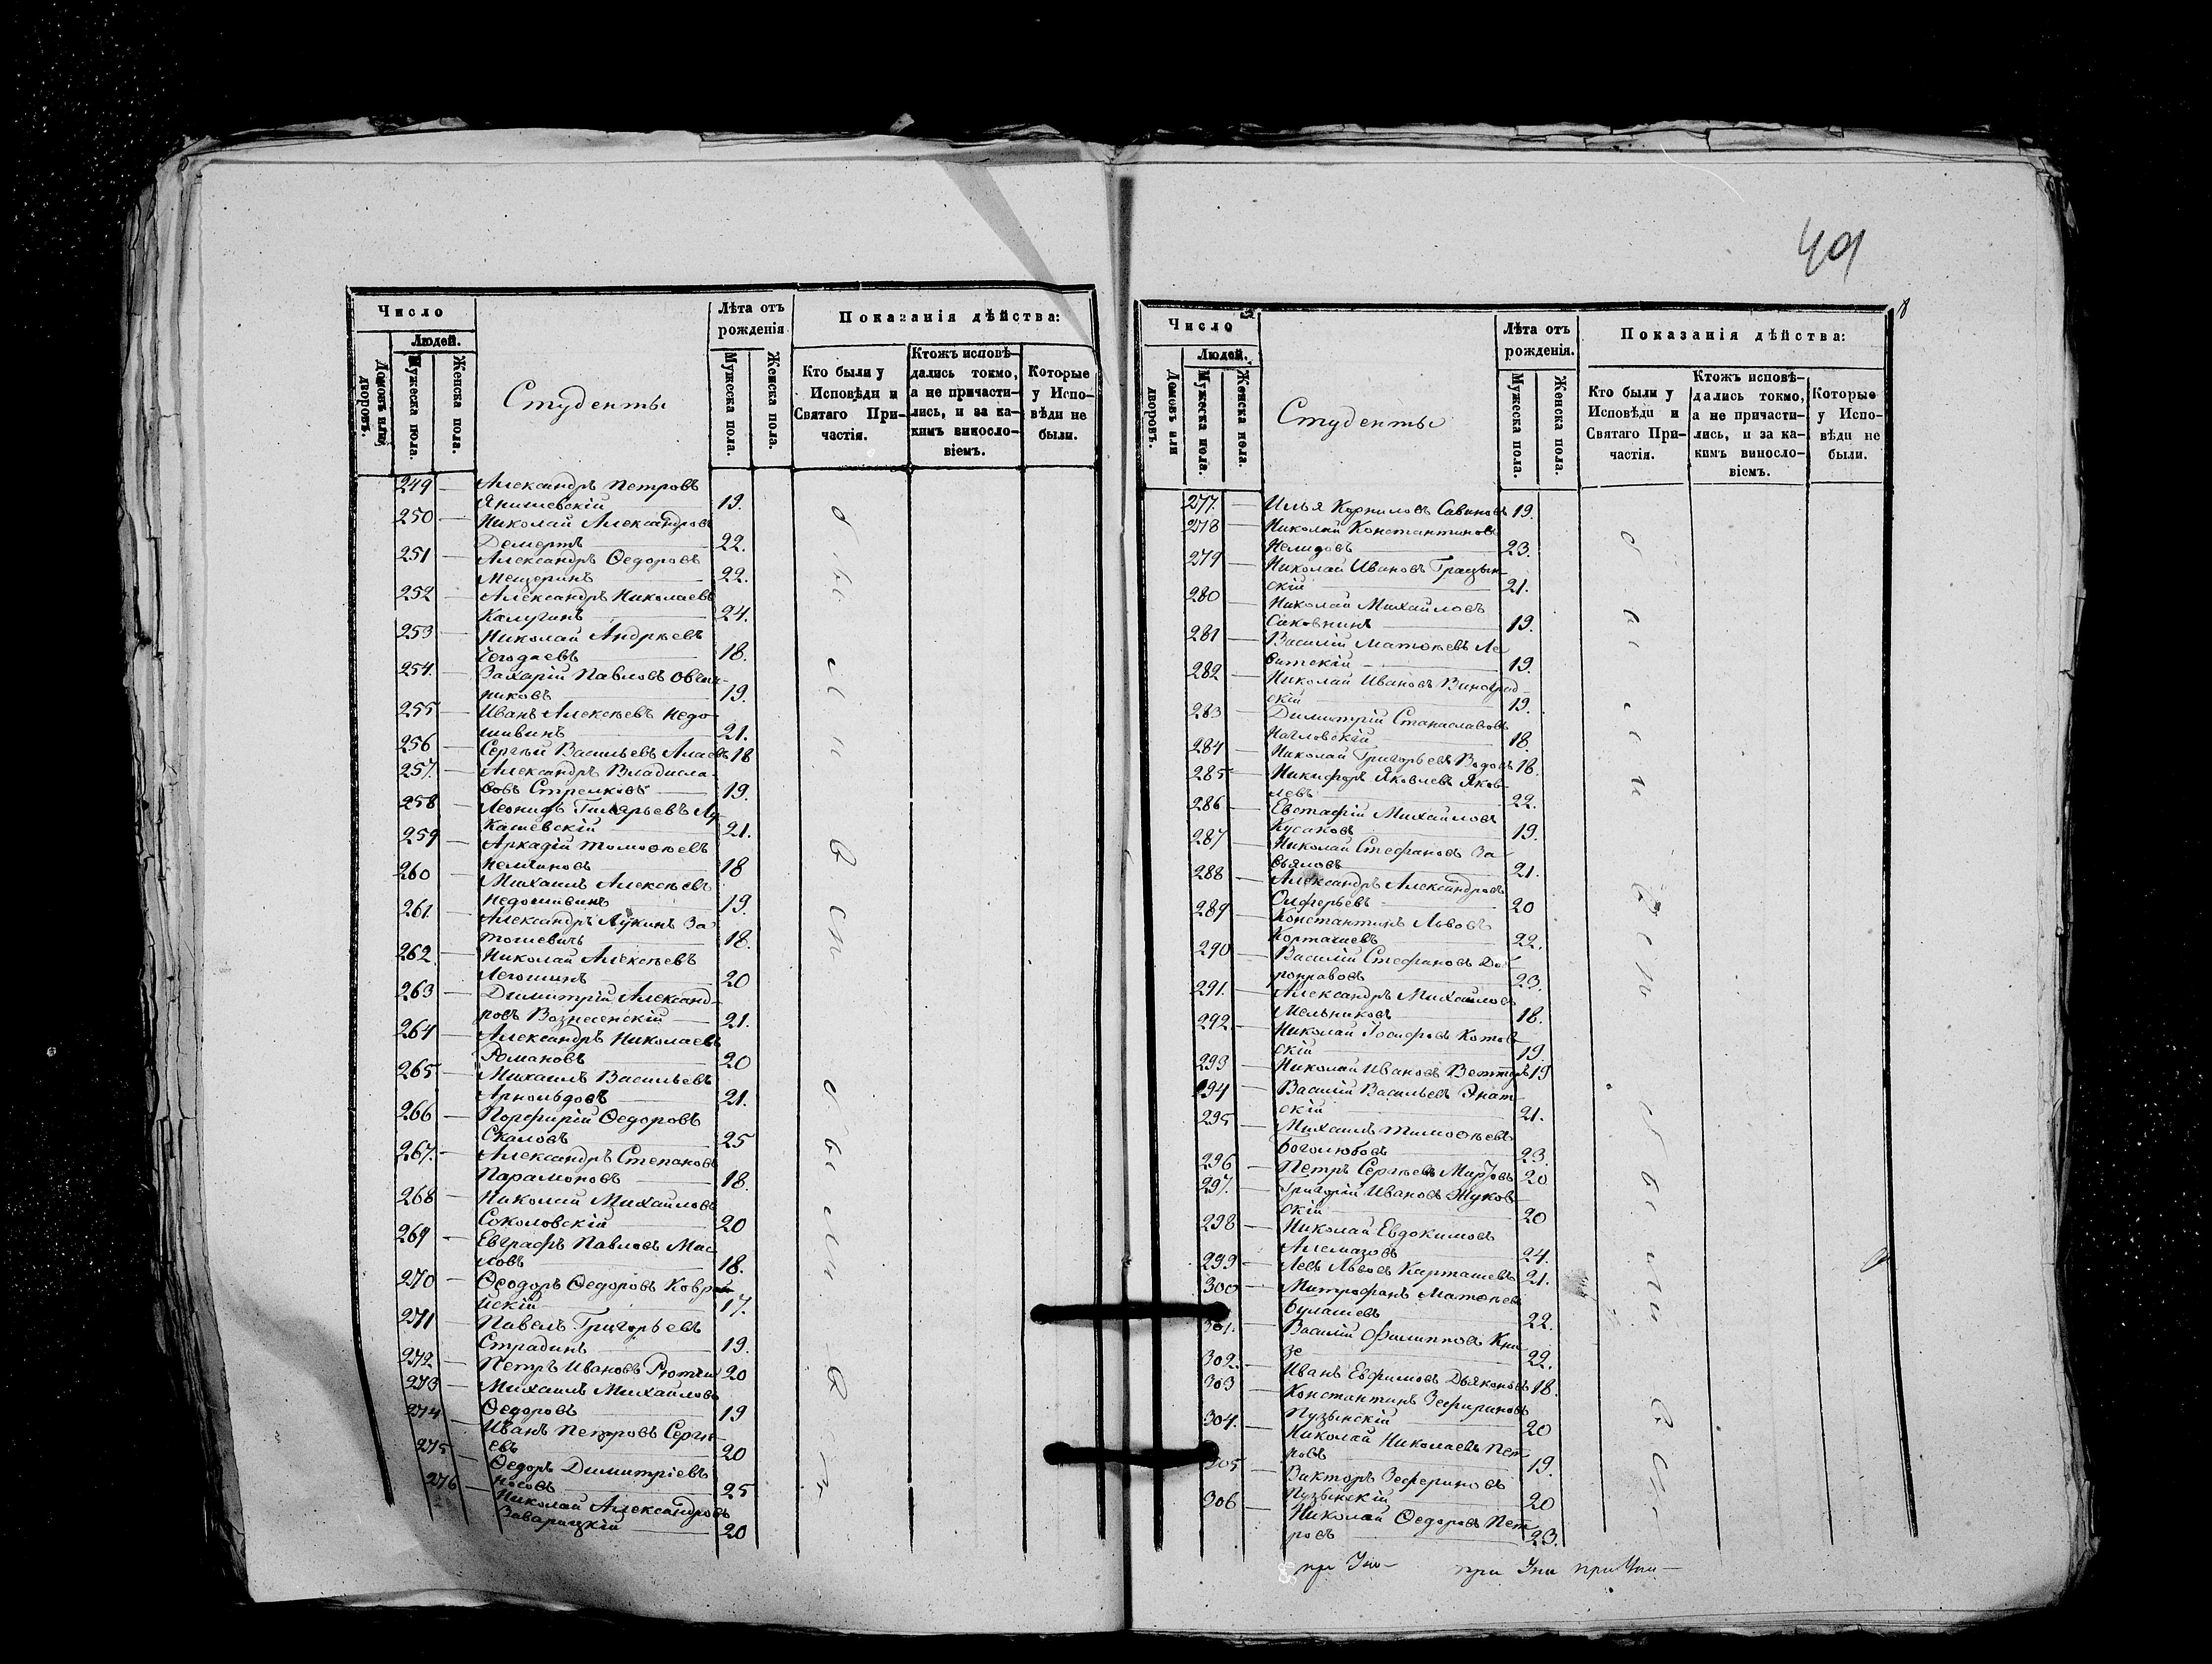 49
Число
Людей.
Домовъ или дворовъ.
Мужеска пола.
Женска пола.
Студенты
Лѣта отъ рожденія
Мужеска пола.
Женска пола.
Показанія дѣйства:
Кто были у Исповѣди и Святаго Причастія.
Ктожъ исповѣдались токмо, а не причастились, и за какимъ винословіемъ.
Которые у Исповѣди не были.
249 — Александръ Петровъ
Янишевскій — 19.
250 — Николай Александровъ
Демертъ — 22.
251 — Александръ Ѳедоровъ
Мещеринъ — 22.
252 — Александръ Николаевъ
Калугинъ — 24.
253 — Николай Андреевъ
— 18.
254. — Захарій Павловъ Овчин-
никовъ — 19.
255 — Иванъ Алексѣевъ Недо-
шивинъ — 21.
256 — Сергѣй Васильевъ 18
257. — Александръ Владисла-
вовъ Стрелковъ — 19.
258 — Леонидъ Лу-
кашевскій — 21.
259 — Аркадій Тимоѳѣевъ
Немчиновъ 18
260 — Михаилъ Алексѣевъ
Недошивинъ 19.
261. — Александръ Лукинъ За-
18.
262 — Николай Алексѣевъ
Легошинъ — 20
263 — Димитрій Александ-
ровъ Вознесенскій — 21.
264 — Александръ Николаевъ
Романовъ — 20
265 — Михаилъ Васильевъ
Арнольдовъ — 21.
266 — Порфирій Ѳедоровъ
Скаловъ — 25
267. — Александръ Степановъ
Парамоновъ — 18.
268 — Николай Михайловъ
Соколовскій — 20
269 — Евграфъ Павловъ Мас-
ловъ — 18.
270 — Ѳеодоръ Ѳедоровъ
йскій — 17.
271 — Павелъ Григорьевъ
Страдинъ — 19.
272 — Петръ Ивановъ 20
273 — Михаилъ Михайловъ
Ѳедоровъ — 19
274 — Иванъ Петровъ Сергѣ-
евъ — 20
275 — Ѳедоръ Димитріевъ
Носовъ — 25
276 — Николай Александровъ
Заварицкій — 20
были
въ
были
въ
Число
Людей.
Домовъ или дворовъ.
Мужеска пола.
Женска пола.
Студенты
Лѣта отъ рожденія.
Мужеска пола.
Женска пола.
Показанія дѣйства:
Кто были у Исповѣди и Святаго Причастія.
Ктожъ исповѣдались токмо, а не причастились, и за какимъ винословіемъ.
Которые у Исповѣди не были.
277. — Илья Корниловъ Савиновъ 19.
278 — Николай Константиновъ
Нелидовъ — 23.
279 — Николай Ивановъ
скій — 21.
280 — Николай Михайловъ
Саковнинъ — 19.
281 — Василій Матвѣевъ Ле-
витскій — 19.
282 — Николай Ивановъ Виноград-
скій — 19.
283 — Димитрій Станиславовъ
18.
284 — Николай Григорьевъ Водовъ 18.
285 — Никифоръ Яковлевъ Яков-
левъ — 22.
286 — Евстафій Михайловъ
Кусаковъ — 19.
287 — Николай Стефановъ За-
вьяловъ — 21.
288 — Александръ Александровъ
Олферьевъ — 20
289 — Константинъ Львовъ
Карташевъ — 22.
290 — Василій Стефановъ Доб-
ронравовъ — 23.
291. — Александръ Михайловъ
Мельниковъ — 18.
292. — Николай Іосифовъ Котов-
скій — 19.
293 — Николай Ивановъ 19
294 — Василій Васильевъ Знам-
скій — 21.
295 — Михаилъ Тимоѳѣевъ
Боголюбовъ — 23.
296 — Петръ Сергѣевъ 20
297. — Григорій Ивановъ Жуков-
скій — 20
298 — Николай Евдокимовъ
Алемазовъ — 24.
299 — Левъ Львовъ Карташевъ 21.
300 — Митрофанъ Матвѣевъ
Булашевъ — 22.
301. — Василій Филипповъ Кни-
зе — 22.
302. — Иванъ Ефимовъ Дьяконовъ 18.
303 — Константинъ Зефириновъ
Пузынскій — 20
304. — Николай Николаевъ Пет-
ровъ — 19.
305 — Викторъ Зефериновъ
Пузынскій — 20
306 — Николай Ѳедоровъ Пет-
ровъ — 23.
были
въ
были
въ